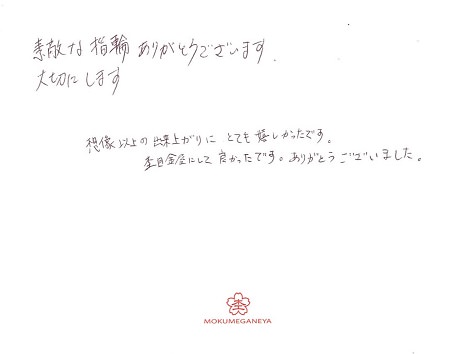 素敵な指輪ありがとうございます.
大切にします
想像以上の出来上がりに とても嬉しかったです。
杢目金屋にして良かったです。ありがとうございました。
杢
MOKUMEGANEYA